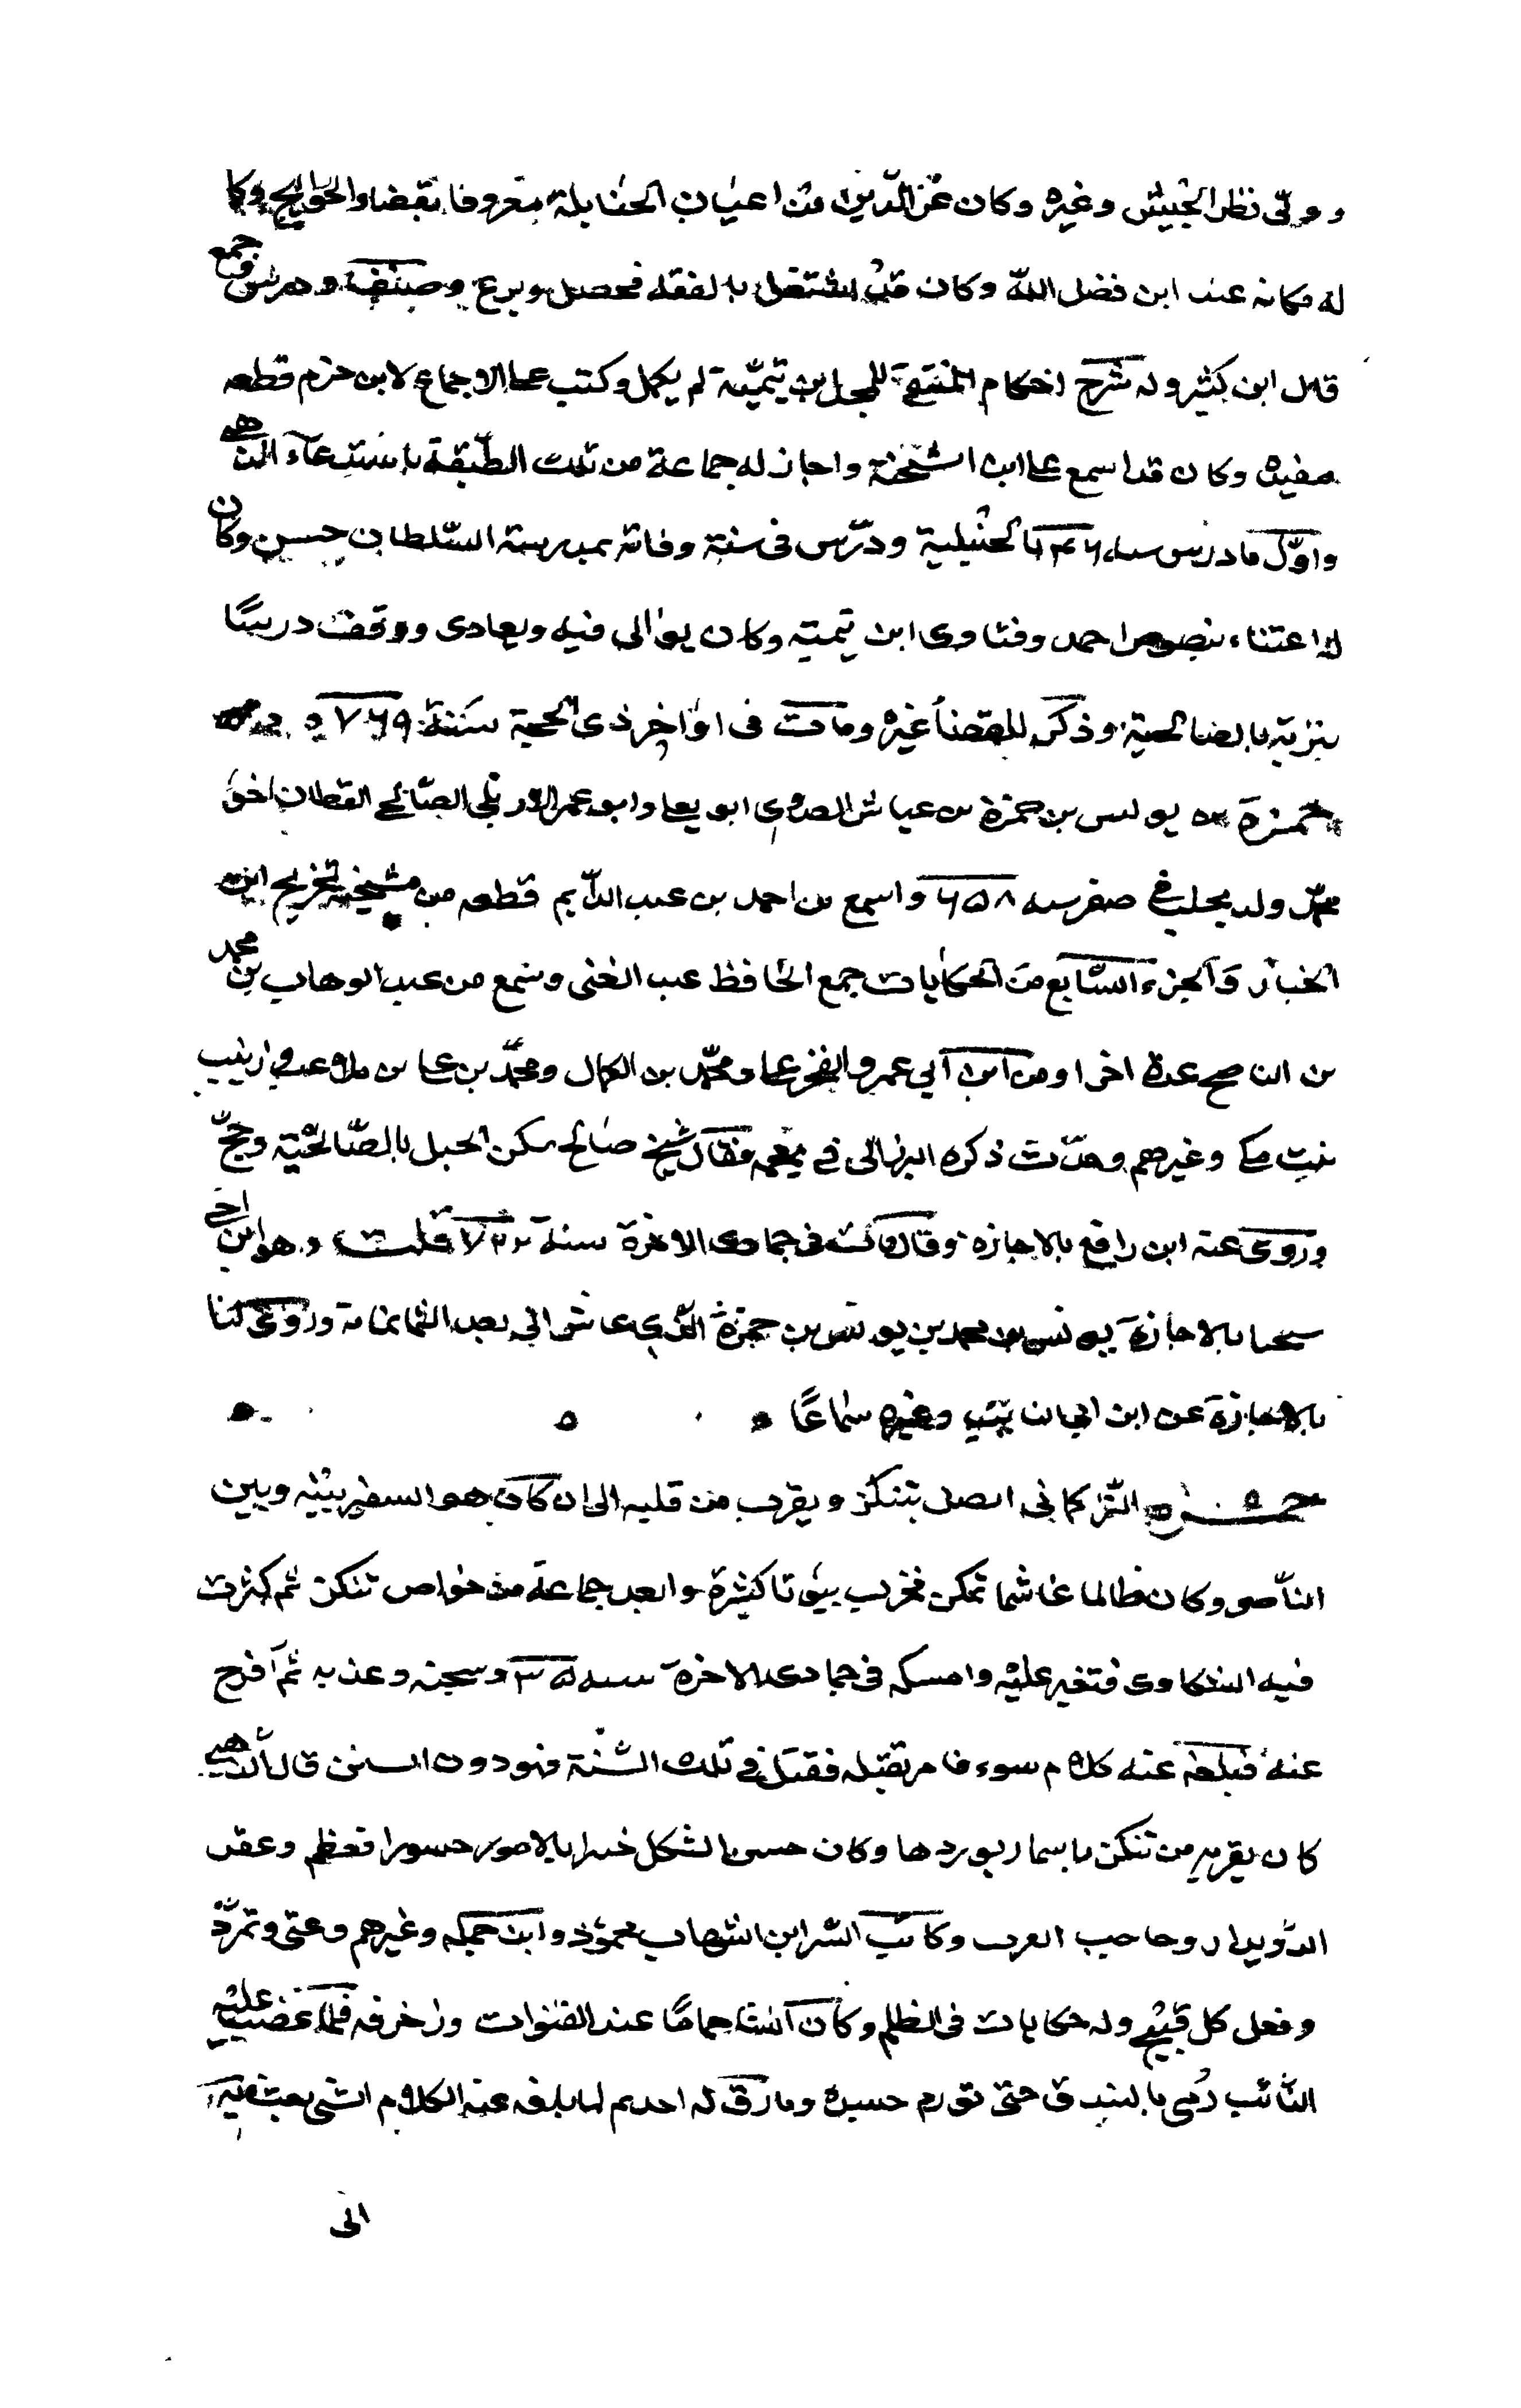 وولي نظر الجيش وغيره وكان عز الدين من اعيان الحنابلة معروفا بقضاء الحوايج وكا
له مكانه عند ابن فضل الله وكان قد اشتغل بالفقه فحصل وبرع وصنف ودرس وجمع
قال ابن كثير وله شرح احكام المنتقى للمجد ابن تيمية لم يكمل وكتب على الاجماع لابن حزم قطعه
مفيده وكان قد اسمع على ابن الشحنة واجاز له جماعة من تلك الطبقة باستدعاء الذهبي
واول ما درس سنه ٧٤٦ بالحنبلية ودرس في سنة وفاته بمدرسة السلطان حسن وكان
له اعتناء بنصوص احمد وفتاوى ابن تيمية وكان يوالى فيه ويعادى ووقف درسا
بتربته بالصالحية وذكر للقضا غيره ومات في اواخر ذى الحجة سنة ٧٦٩
حمزة بن يونس بن حمزة بن عياش العدوى ابو يعلى وابو عمر الاربلى الصالحي القطان اخو
محمد ولد بحلب في صفر سنه ٦٥٨ واسمع من احمد بن عبد الدايم قطعه من مشيخته تخريج ابن
الخباز والجزء السابع من الحكايات جمع الحافظ عبد الغنى وسمع من عبد الوهاب بن محمد
بن الناصح عدة اخرا ومن ابن ابي عمر والفخر على ومحمد بن الكمال ومحمد بن على بن ملاعب وزينب
بنت مكي وغيرهم وحدث ذكره البرزالى في معجمه فقال شيخ صالح سكن الجبل بالصالحية وحج
وروى عنه ابن رافع بالاجازه وقال مات في جمادى الاخرة سنة ٧٣٢ قلت وهو ابن اخي
شيخنا بالاجازة يونس بن محمد بن يونس بن حمزة الذي عاش الى بعد الثمانمائة وروى لنا
بالاجازة عن ابن ابي التايب وغيره سماعا
حمزه التركمانى اتصل بتنكز ويقرب من قلبه الى ان كان هو السفير بينه وبين
الناصر وكان ظالما غاشما تمكن فخرب بيوتا كثيرة وابعد جماعة من خواص تنكز ثم كثرت
فيه الشكاوى فتغير عليه وامسكه في جمادى الاخرة سنه ٣٥ وسجنه وعذبه ثم افرج
عنه فبلغه عنه كلام سوء فامر بقتله فقتل في تلك السنة وهو دون الستين قال الذهبي
كان يقربه من تنكز باسمار يوردها وكان حسن الشكل خبيرا بالامور جسورا فعظم وعقر
الدويدار وحاجب العرب وكاتب السر ابن الشهاب محمود وابن حمله وغيرهم وعتى وتمرد
وفعل كل قبيح وله حكايات في الظلم وكان انشا حماما عند القنوات وزخرفه فلما غضب عليه
النائب رمى بالبندق حتى تورم جسده وما رق له احد ثم لما بلغه عنه الكلام السى بعث به
الى